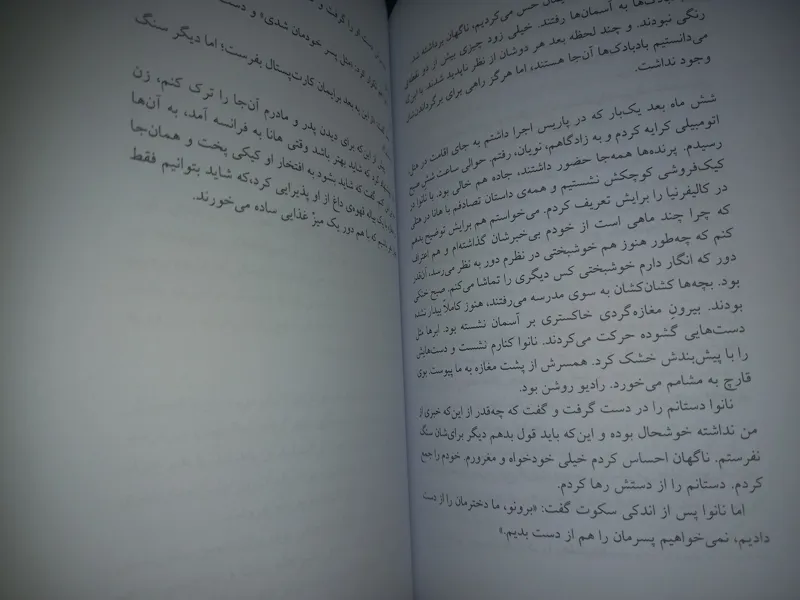 بادبادک‌ها به آسمان‌ها رفتند. خیلی زود چیزی بیش از دو نقطه‌ی
رنگی نبودند. و چند لحظه بعد هر دوشان از نظر ناپدید شدند. با این‌که
می‌دانستیم بادبادک‌ها آن‌جا هستند، اما هرگز راهی برای برگرداندن‌شان
وجود نداشت.
شش ماه بعد یک‌بار که در پاریس اجرا داشتم به جای اقامت در هتل
اتومبیلی کرایه کردم و به زادگاهم، نویان، رفتم. حوالی ساعت شش صبح
رسیدم. پرنده‌ها همه‌جا حضور داشتند، جاده هم خالی بود. با نانوا در
کیک‌فروشی کوچکش نشستیم و همه‌ی داستان تصادفم با هانا در هتلی
در کالیفرنیا را برایش تعریف کردم. می‌خواستم هم برایش توضیح بدهم
که چرا چند ماهی است از خودم بی‌خبرشان گذاشته‌ام و هم اعتراف
کنم که چه‌طور هنوز هم خوشبختی در نظرم دور به نظر می‌رسد، آن‌قدر
دور که انگار دارم خوشبختی کس دیگری را تماشا می‌کنم. صبح خنکی
بود. بچه‌ها کشان‌کشان به سوی مدرسه می‌رفتند، هنوز کاملاً بیدار نشده
بودند. بیرونِ مغازه‌گردی خاکستری بر آسمان نشسته بود. ابرها مثل
دست‌هایی گشوده حرکت می‌کردند. نانوا کنارم نشست و دست‌هایش
را با پیش‌بندش خشک کرد. همسرش از پشت مغازه به ما پیوست. بوی
قارچ به مشامم می‌خورد. رادیو روشن بود.
نانوا دستانم را در دست گرفت و گفت که چه‌قدر از این‌که خبری از
من نداشته خوشحال بوده و این‌که باید قول بدهم دیگر برای‌شان سنگ
نفرستم. ناگهان احساس کردم خیلی خودخواه و مغرورم. خودم را جمع
کردم. دستانم را از دستش رها کردم.
اما نانوا پس از اندکی سکوت گفت: «برونو، ما دخترمان را از دست
دادیم، نمی‌خواهیم پسرمان را هم از دست بدیم.»
مثل پسر خودمان شدی» و دست
از این به بعد برایمان کارت‌پستال بفرست؛ اما دیگر سنگ
از این‌که برای دیدن پدر و مادرم آن‌جا را ترک کنم، زن
که شاید بهتر باشد وقتی هانا به فرانسه آمد، به آن‌ها
گفت که شاید بشود به افتخار او کیکی پخت و همان‌جا
یک پیاله قهوه‌ی داغ از او پذیرایی کرد،که شاید بتوانیم فقط
که با هم دور یک میز غذایی ساده می‌خورند.